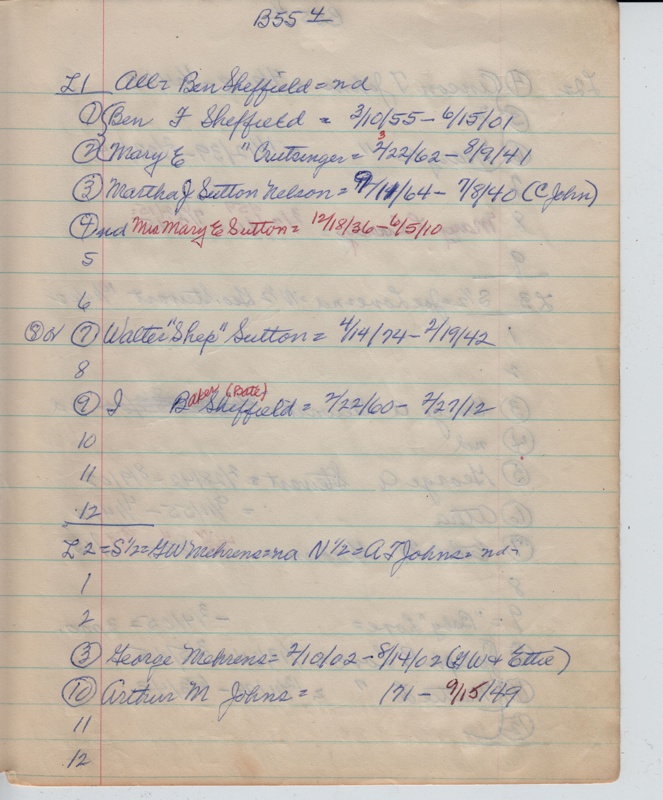 B55 4
L1 All = Ben Sheffield = nd
① Ben F Sheffield = 3/10/55 - 6/15/01
② Mary E " Crutsinger = 3/22/62 - 8/9/41
③ Martha J Sutton Nelson = /64 - 7/8/40 (C John)
④ nd Mrs Mary E Sutton = 12/18/36 - 6/5/10
5
6
⑧ or ⑦ Walter "Shep" Sutton = 4/14/74 - 2/19/42
8
⑨ I Baker (Bate) Sheffield = 2/22/60 - 2/27/12
10
11
12
L2 = S 1/2 = GW Mehrens = na N 1/2 = A F Johns = nd -
1
2
③ George Mehrens = 2/10/02 - 8/14/02 (GW & Ettie)
⑩ Arthur M Johns = = " /71 - 9/15/49
11
12